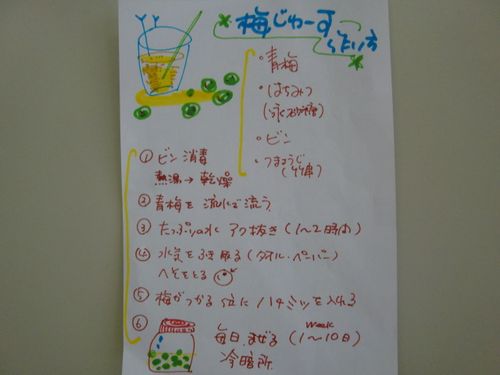 梅じゅーす
くだい方
・青梅
・はちみつ
(氷砂糖)
・ビン
・つまようじ
(竹串)
① ビン消毒
熱湯→乾燥
② 青梅を流水で流う
③ たっぷりの水 アク抜き(1〜2時間)
④ 水気をふき取る(タオル・ペーパー)
へそをとる
⑤ 梅がつかる位にハチミツを入れる
⑥ 毎日まぜる(1week〜10日)
冷暗所